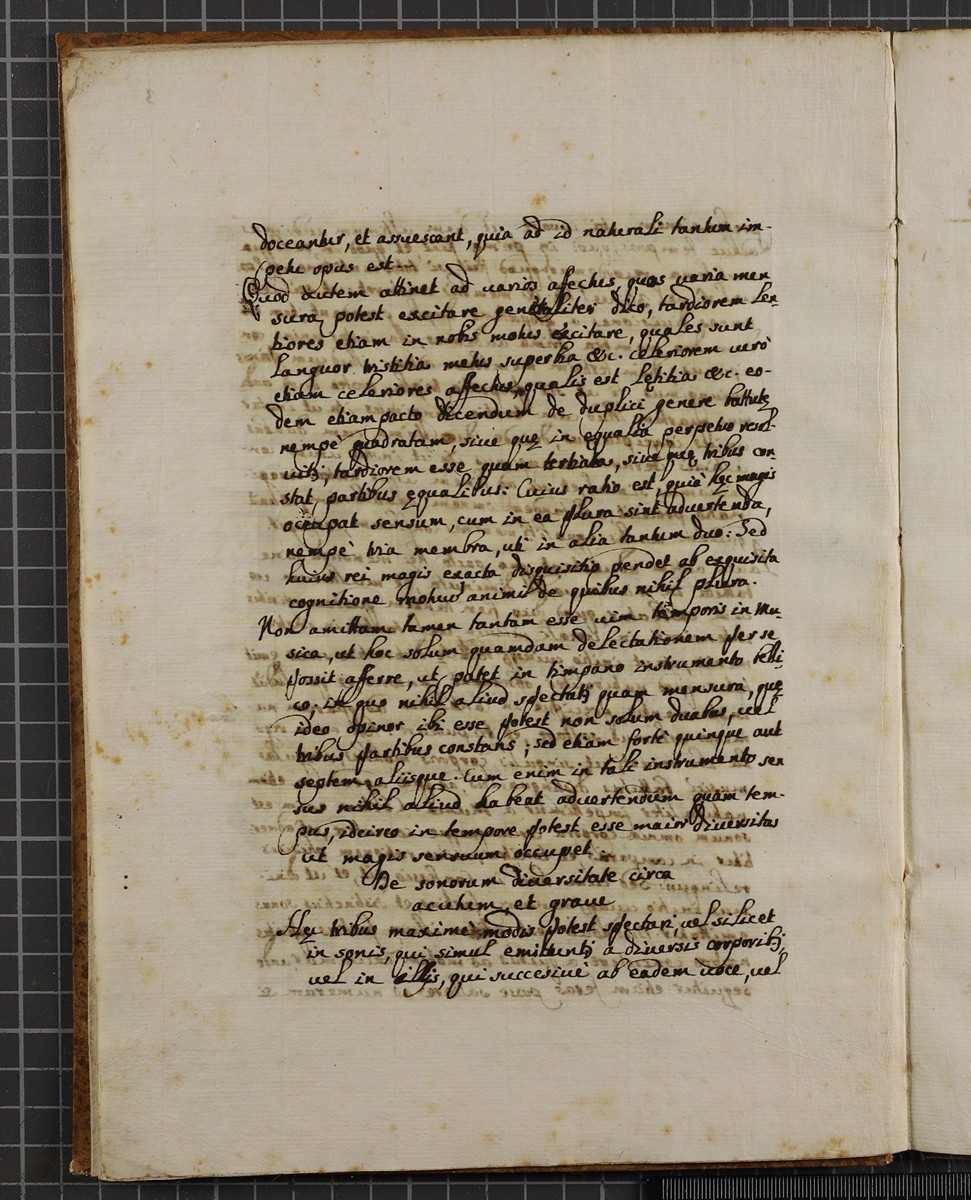 doceantur, et assuescant, quia ad id naturali tantum im-
petu opus est.
Quod autem attinet ad uarios affectus, quos uaria men
sura potest excitare generaliter dico, tardiorem len-
tiores etiam in nobis motus excitare, quales sunt
languor tristitia metus superbia &c. celeriorem uerò
etiam celeriores affectus, qualis est lętitia &c. eo-
dem etiam pacto dicendum de duplici genere battutę
nempè quadratam, siue quę in equalia perpetuo resol-
uitʒ, tardiorem esse quam tertiata, siue quę tribus con
stat partibus ęqualibus: Cuius ratio est, quia hęc magis
occupat sensum, cum in ea plura sint aduertenda,
nempè tria membra, uti in alia tantum duo: Sed
huius rei magis exacta disquisitio pendet ab exquisita
cognitione motuū animi de quibus nihil plura.
Non amittam tamen tantam esse uim temporis in Mu-
sica, ut hoc solum quamdam delectationem per se
possit afferre, ut patet in timpano instrumento belli-
co, in quo nihil aliud spectatʒ quam mensura, quę
ideo opinor ibi esse potest non solum duabus, uel
tribus partibus constans; sed etiam fortè quinque aut
septem, aliisque. Cum enim in tali instrumento sen
sus nihil aliud habeat aduertendum quam tem-
pus, idcirco in tempore potest esse maior diuersitas
ut magis sensuum occupet.
De sonorum diuersitate circa
acutum, et graue
Hęc tribus maximè modis potest spectari, uel silicet
in sonis, qui simul emittuntʒ a diuersis corporibʒ,
uel in illis, qui succesiuè ab eadem uoce, uel